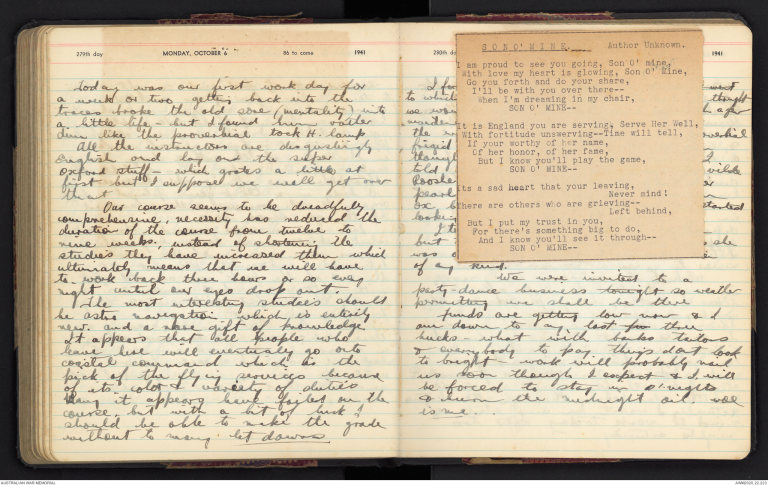 279th day MONDAY, OCTOBER 6 86 to come 1941
today was our first work day for
a week or two, getting back into the
traces broke the old sore (mentality) into
a little life - but I found mine rather
dim like the proverbial tock H. lamp
All the instructors are disgustingly
English and lay on the super
Oxford stuff - which grates a little at
first but I suppose we will get over
that
Our course seems to be dreadfully
comprehensive, necessity has reduced the
duration of the course from twelve to
nine weeks, instead of shortening the
studies they have increased them which
ultimately means that we will have
to work back three hours or so every
night until our eyes drop out.
The most interesting studies should
be astro navigation which is entirely
new and a nave gift of knowledge.
It appears that all people who
leave here will eventually go onto
coastal command which is the
pick of the flying services because
of its color & variety of duties
many it appears have failed on the
course, but with a bit of luck I
should be able to make the grade
without to many let downs
280th day 1941
SON O' MINE. Author Unknown.
I am proud to see you going, Son O' mine,
With love my heart is glowing, Son O' Mine,
Go you forth and do your share,
I'll be with you over there--
When I'm dreaming in my chair,
SON O' MINE--
It is England you are serving, Serve Her Well,
With fortitude unswerving--Time will tell,
If your worthy of her name,
Of her honor, of her fame,
But I know you'll play the game,
SON O' MINE--
Its a sad heart that your leaving,
Never mind!
There are others who are grieving--
Left behind,
But I put my trust in you,
For there's something big to do,
And I know you'll see it through--
SON O' MINE--
to which
we
under
the
frigid
though
told
Roosh
pearl
ox
looking
but
was
of any kind.
went
thought
proverbial
I
while
started
she
We were invited to a
party-dance business tonight so weather
permitting we shall be there
funds are getting low now & I
am down to my last three
bucks - what with banks tailors
& everybody to pay things dont look
to bright - work will probably nail
us soon though I expect & I will
be forced to stay in o'nights
so burn the midnight oil woe
is me...
AUSTRALIAN WAR MEMORIAL